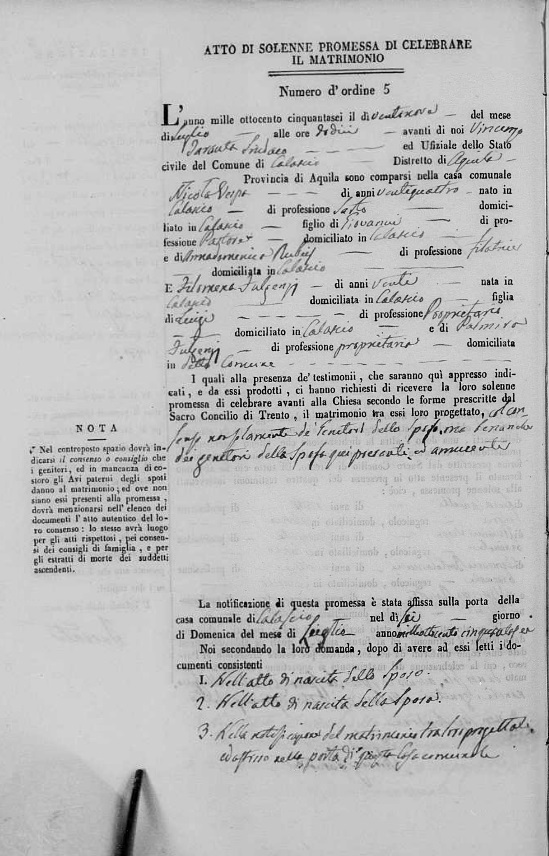 ATTO DI SOLENNE PROMESSA DI CELEBRARE
IL MATRIMONIO
Numero d'ordine 5
L'anno mille ottocento cinquantasei il dì ventinove del mese
di Luglio alle ore dodici avanti di noi Vincenzo
Tarquta Sindaco ed Ufiziale dello Stato
civile del Comune di Calascio Distretto di Aquila
Provincia di Aquila sono comparsi nella casa comunale
Nicola Vespa di anni ventiquattro nato in
Calascio di professione Sarto domici-
liato in Calascio figlio di Giovanni di pro-
fessione Pastore domiciliato in Calascio
e di Annadomenica di professione filatrice
domiciliata in Calascio
E Filomena Fulgenzj di anni venti nata in
Calascio domiciliata in Calascio figlia
di Luigi di professione Proprietario
domiciliato in Calascio e di Palmira
Fulgenzj di professione proprietaria domiciliata
in detto Comune
I quali alla presenza de' testimonii, che saranno qui appresso indi-
cati, e da essi prodotti, ci hanno richiesti di ricevere la loro solenne
promessa di celebrare avanti alla Chiesa secondo le forme prescritte dal
Sacro Concilio di Trento, il matrimonio tra essi loro progettato, col con
senso non solamente de' Genitori dello Sposo, ma benanche
dei genitori della Sposa qui presenti ed annuenti
NOTA
Nel controposto spazio dovrà in-
dicarsi il consenso o consiglio che
i genitori, ed in mancanza di co-
storo gli Avi paterni degli sposi
danno al matrimonio; ed ove non
siano essi presenti alla promessa,
dovrà menzionarsi nell'elenco dei
documenti l'atto autentico del lo-
ro consenso: lo stesso avrà luogo
per gli atti rispettosi, pei consen-
si dei consigli di famiglia, e per
gli estratti di morte dei suddetti
ascendenti.
La notificazione di questa promessa è stata affissa sulla porta della
casa comunale di Calascio nel dì sei giorno
di Domenica del mese di Luglio anno milleottocento cinquantasei
Noi secondando la loro domanda, dopo di avere ad essi letti i do-
cumenti consistenti
1. Nell'atto di nascita dello Sposo.
2. Nell'atto di nascita della Sposa.
3. Nella notificazione del matrimonio tra loro progettato
ed affisso nella porta di questa Casa comunale